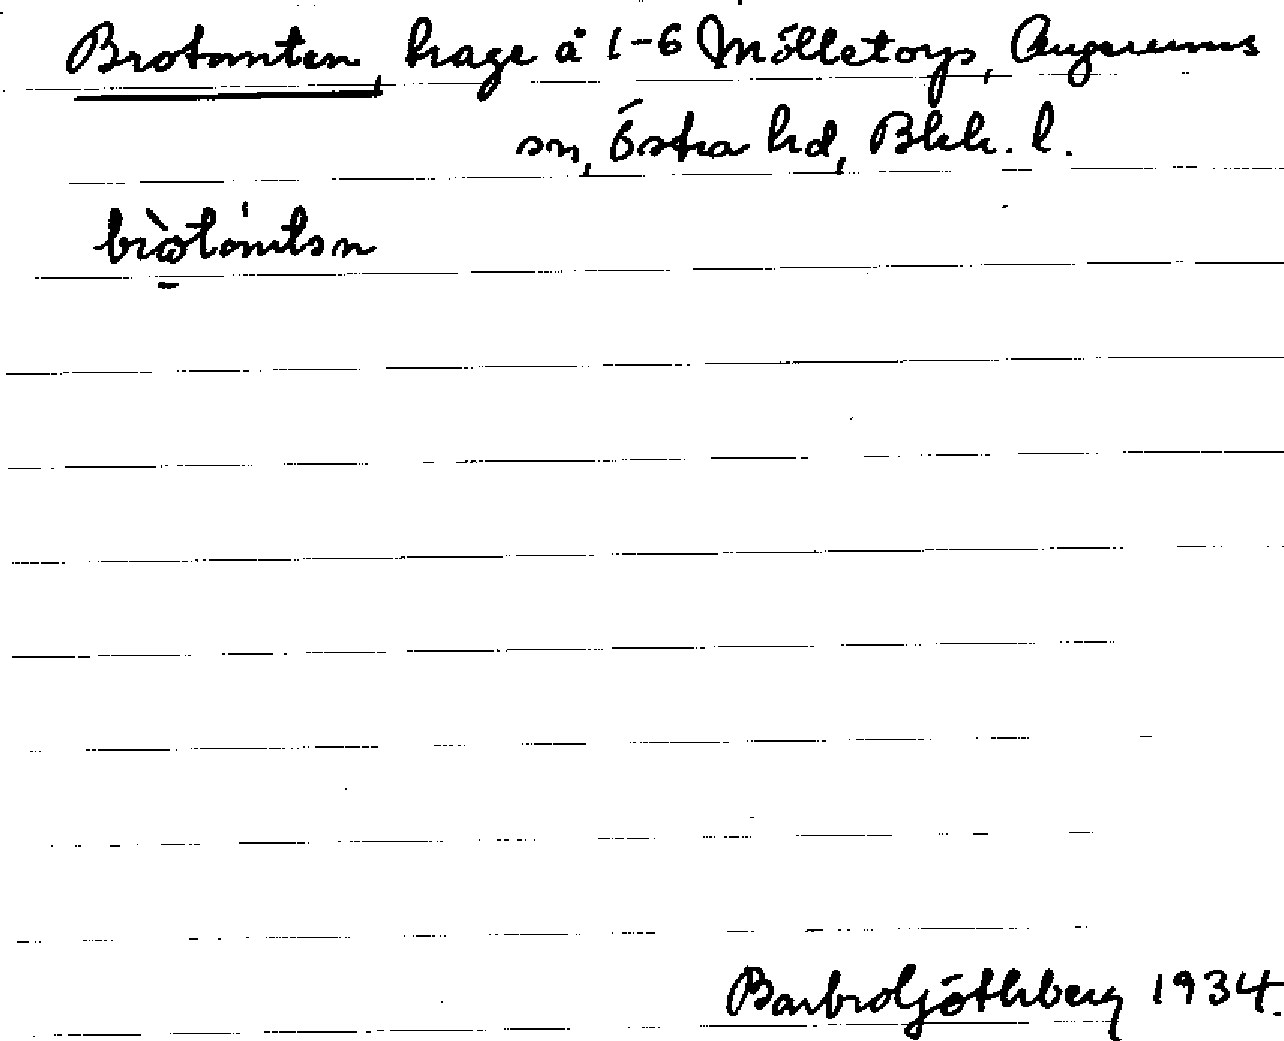 Brotomten, hage å 1-6 Mölletorp, Augerums
sn, Östra hd, Blek. l.
bròtómtən
Barbro Göthberg 1934.